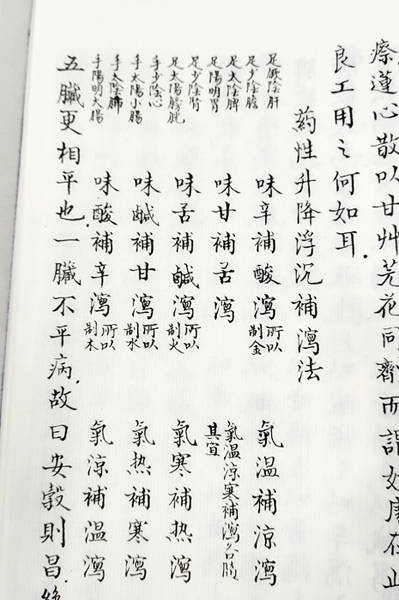 瘵蓮心散以甘艸芫花同齊而謂好處在此
良工用之何如耳.
葯性升降浮沉補瀉法
足厥陰肝 足少陰膽 味辛補酸瀉 所以制金 氣溫補涼瀉
足太陰脾 足陽明胃 味甘補苦瀉 氣溫涼寒補瀉各隨其宜
足少陰腎 足太陽膀胱 味苦補鹹瀉 所以制火 氣寒補热瀉
手少陰心 手太陽小腸 味鹹補甘瀉 所以制水 氣热補寒瀉
手太陰肺 手陽明大腸 味酸補辛瀉 所以制木 氣涼補溫瀉
五臟更相平也.一臟不平病.故曰安穀則昌.絶